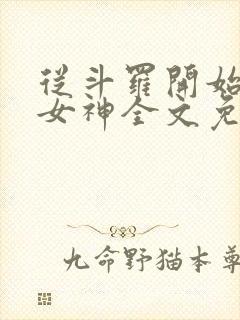 從斗羅開始
女神全文免
九命野猫本尊